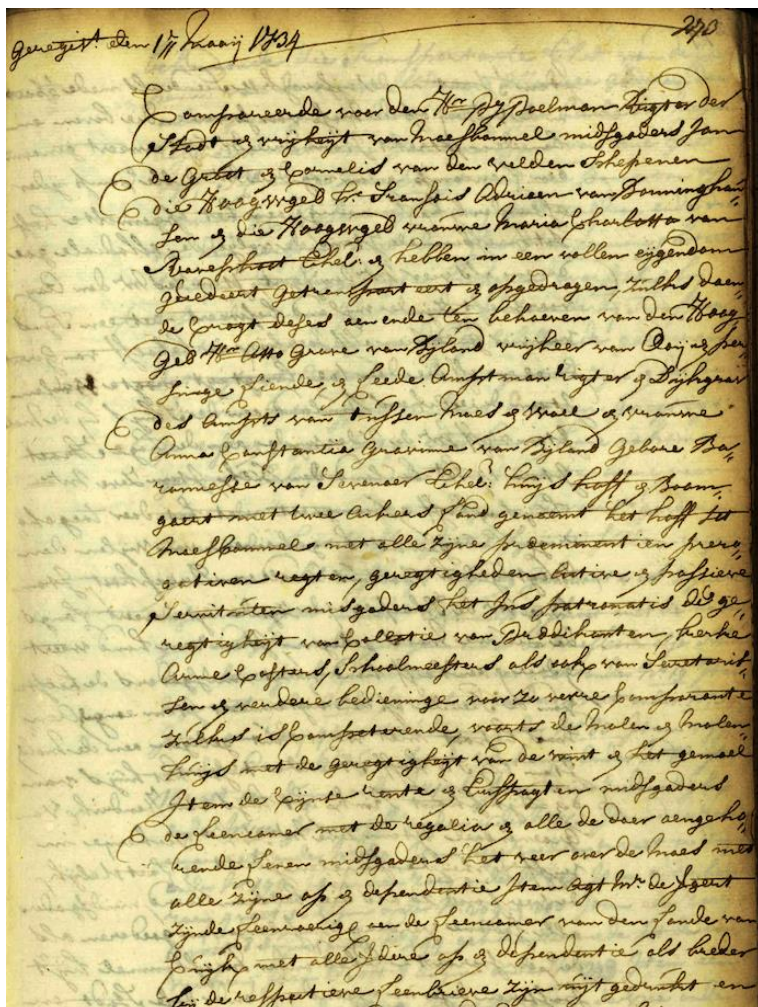 geregist. den 17 Maaij 1734
270
Compareerde voor den Hr. Poelman Rigter der
Stadt & vrijheijt van Maesbommel midsgaders Jan
de Groot & Cornelis van den velden Schepenen
die Hoogwgeb hr. Fransois Adriaen van Bonninghau-
sen & die Hoogwgeb vrouwe Maria Charlotta van
Ehel: & hebben in een vollen eijgendom
gecedeert getransporteert & opgedragen, zulks doen-
de cragt deses aen ende ten behoeven van den Hoog-
geb Hrn Otto Grave van Bijland vrijheer van &
& Leede Amptman rigter & Dijkgraaf
des Ampts van tussen Maes & Wael & vrouwe
Anna Constantia Gravinne van Bijland Gebore Ba-
ronnesse van Sevenaer Ehel: huijs hoff & Boom-
gaert met twee Ackers Land genoemt het hoff tot
Maesbommel met alle zijne prerо-
gativen regten, geregtigheden Active & passieve
Servituten misgaders het Jus patronatis de ge-
regtigheijt van Collatie van Predikanten, kerke
Arme Costers, Schoolmeesters als ook van Secretaris-
sen & verdere bedieninge voor zo verre Comparante
zulks is Competerende, voorts de Molen & Molen-
huijs met de geregtigheijt van de wint & het gemael
Item de Cijnse rente & midsgaders
de Leencamer met de regalia & alle de daer aengeho-
rende Lenen midsgaders het veer over de Maes met
alle zijne op & dependentie Item Agt Mr. de
zijnde Leenroerig aen de Leencamer van den Lande van
Cuijk met alle op & dependentie als breder
bij de respective Leenbrieve zijn uijt gedruckt en